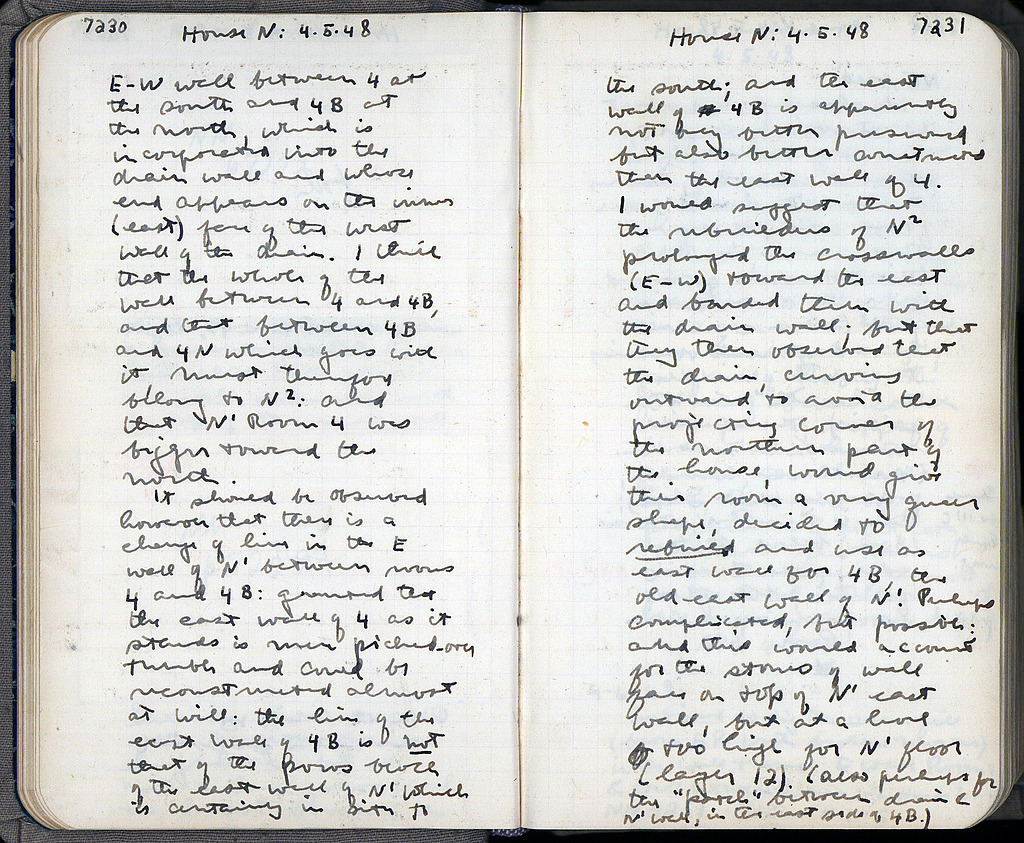 7230
House N: 4.5.48
E-W wall between 4 at
the south and 4B at
the north, which is
incorporated into the
drain wall and whose
end appears on the inner
(east) face of the west
wall of the drain. I think
that the whole of the
wall between 4 and 4B,
and that between 4B
and 4N which goes with
it, must therefore
belong to N²: and
that N' Room 4 was
bigger toward the
north.
It should be observed
however that there is a
change of line in the E
wall of N' between rooms
4 and 4B: granted that
the east wall of 4 as it
stands is mere picked-over
tumble and could be
reconstructed almost
at will: the line of the
east wall of 4B is not
that of the poros block
of the east wall of N' which
is certainly in situ to
7231
House N: 4.5.48
the south; and the east
wall of 4B is apparently
not only better preserved
but also better constructed
than the east wall of 4.
I would suggest that
the rebuilders of N²
prolonged the crosswalls
(E-W) toward the east
and bonded them with
the drain wall; but that
they then observed that
the drain, curving
outward to avoid the
projecting corner of
the northern part of
the house, would give
their room a very queer
shape, decided to
rebuild and use as
east wall for 4B, the
old east wall of N'. Perhaps
complicated, but possible:
and this would account
for the stones of wall
face on top of N' east
wall, but at a level
too high for N' floor
(layer 12) (also perhaps for
the "patch" between drain &
N' wall, in the east side of 4B.)